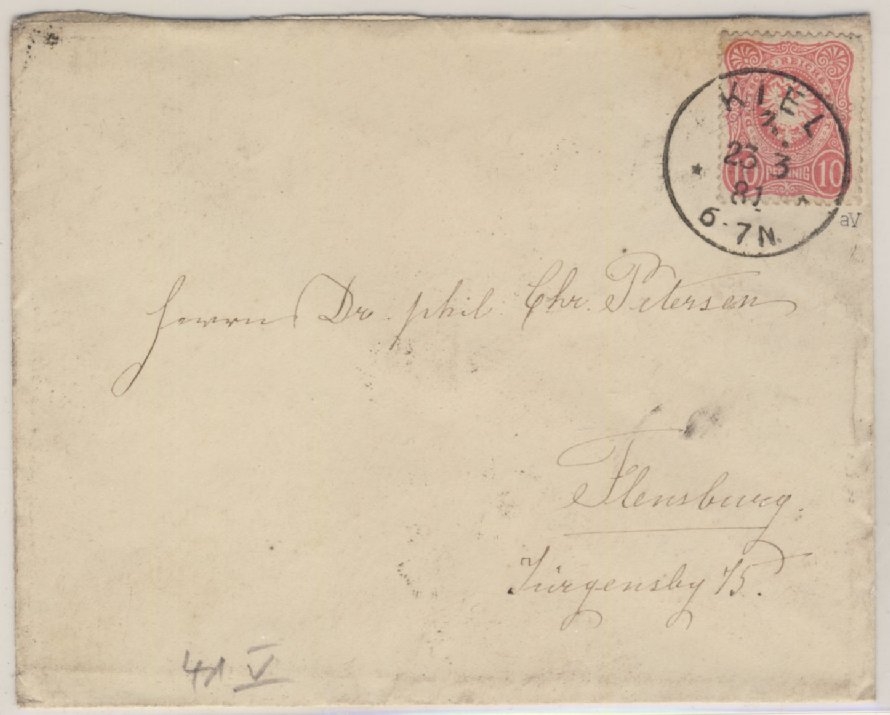 REICHS
KIEL
23 3
81
6-7N.
10 PFENNIG 10
aV
Herrn Dr. phil. Chr. Petersen
Flensburg.
Jürgensby 75.
41 V